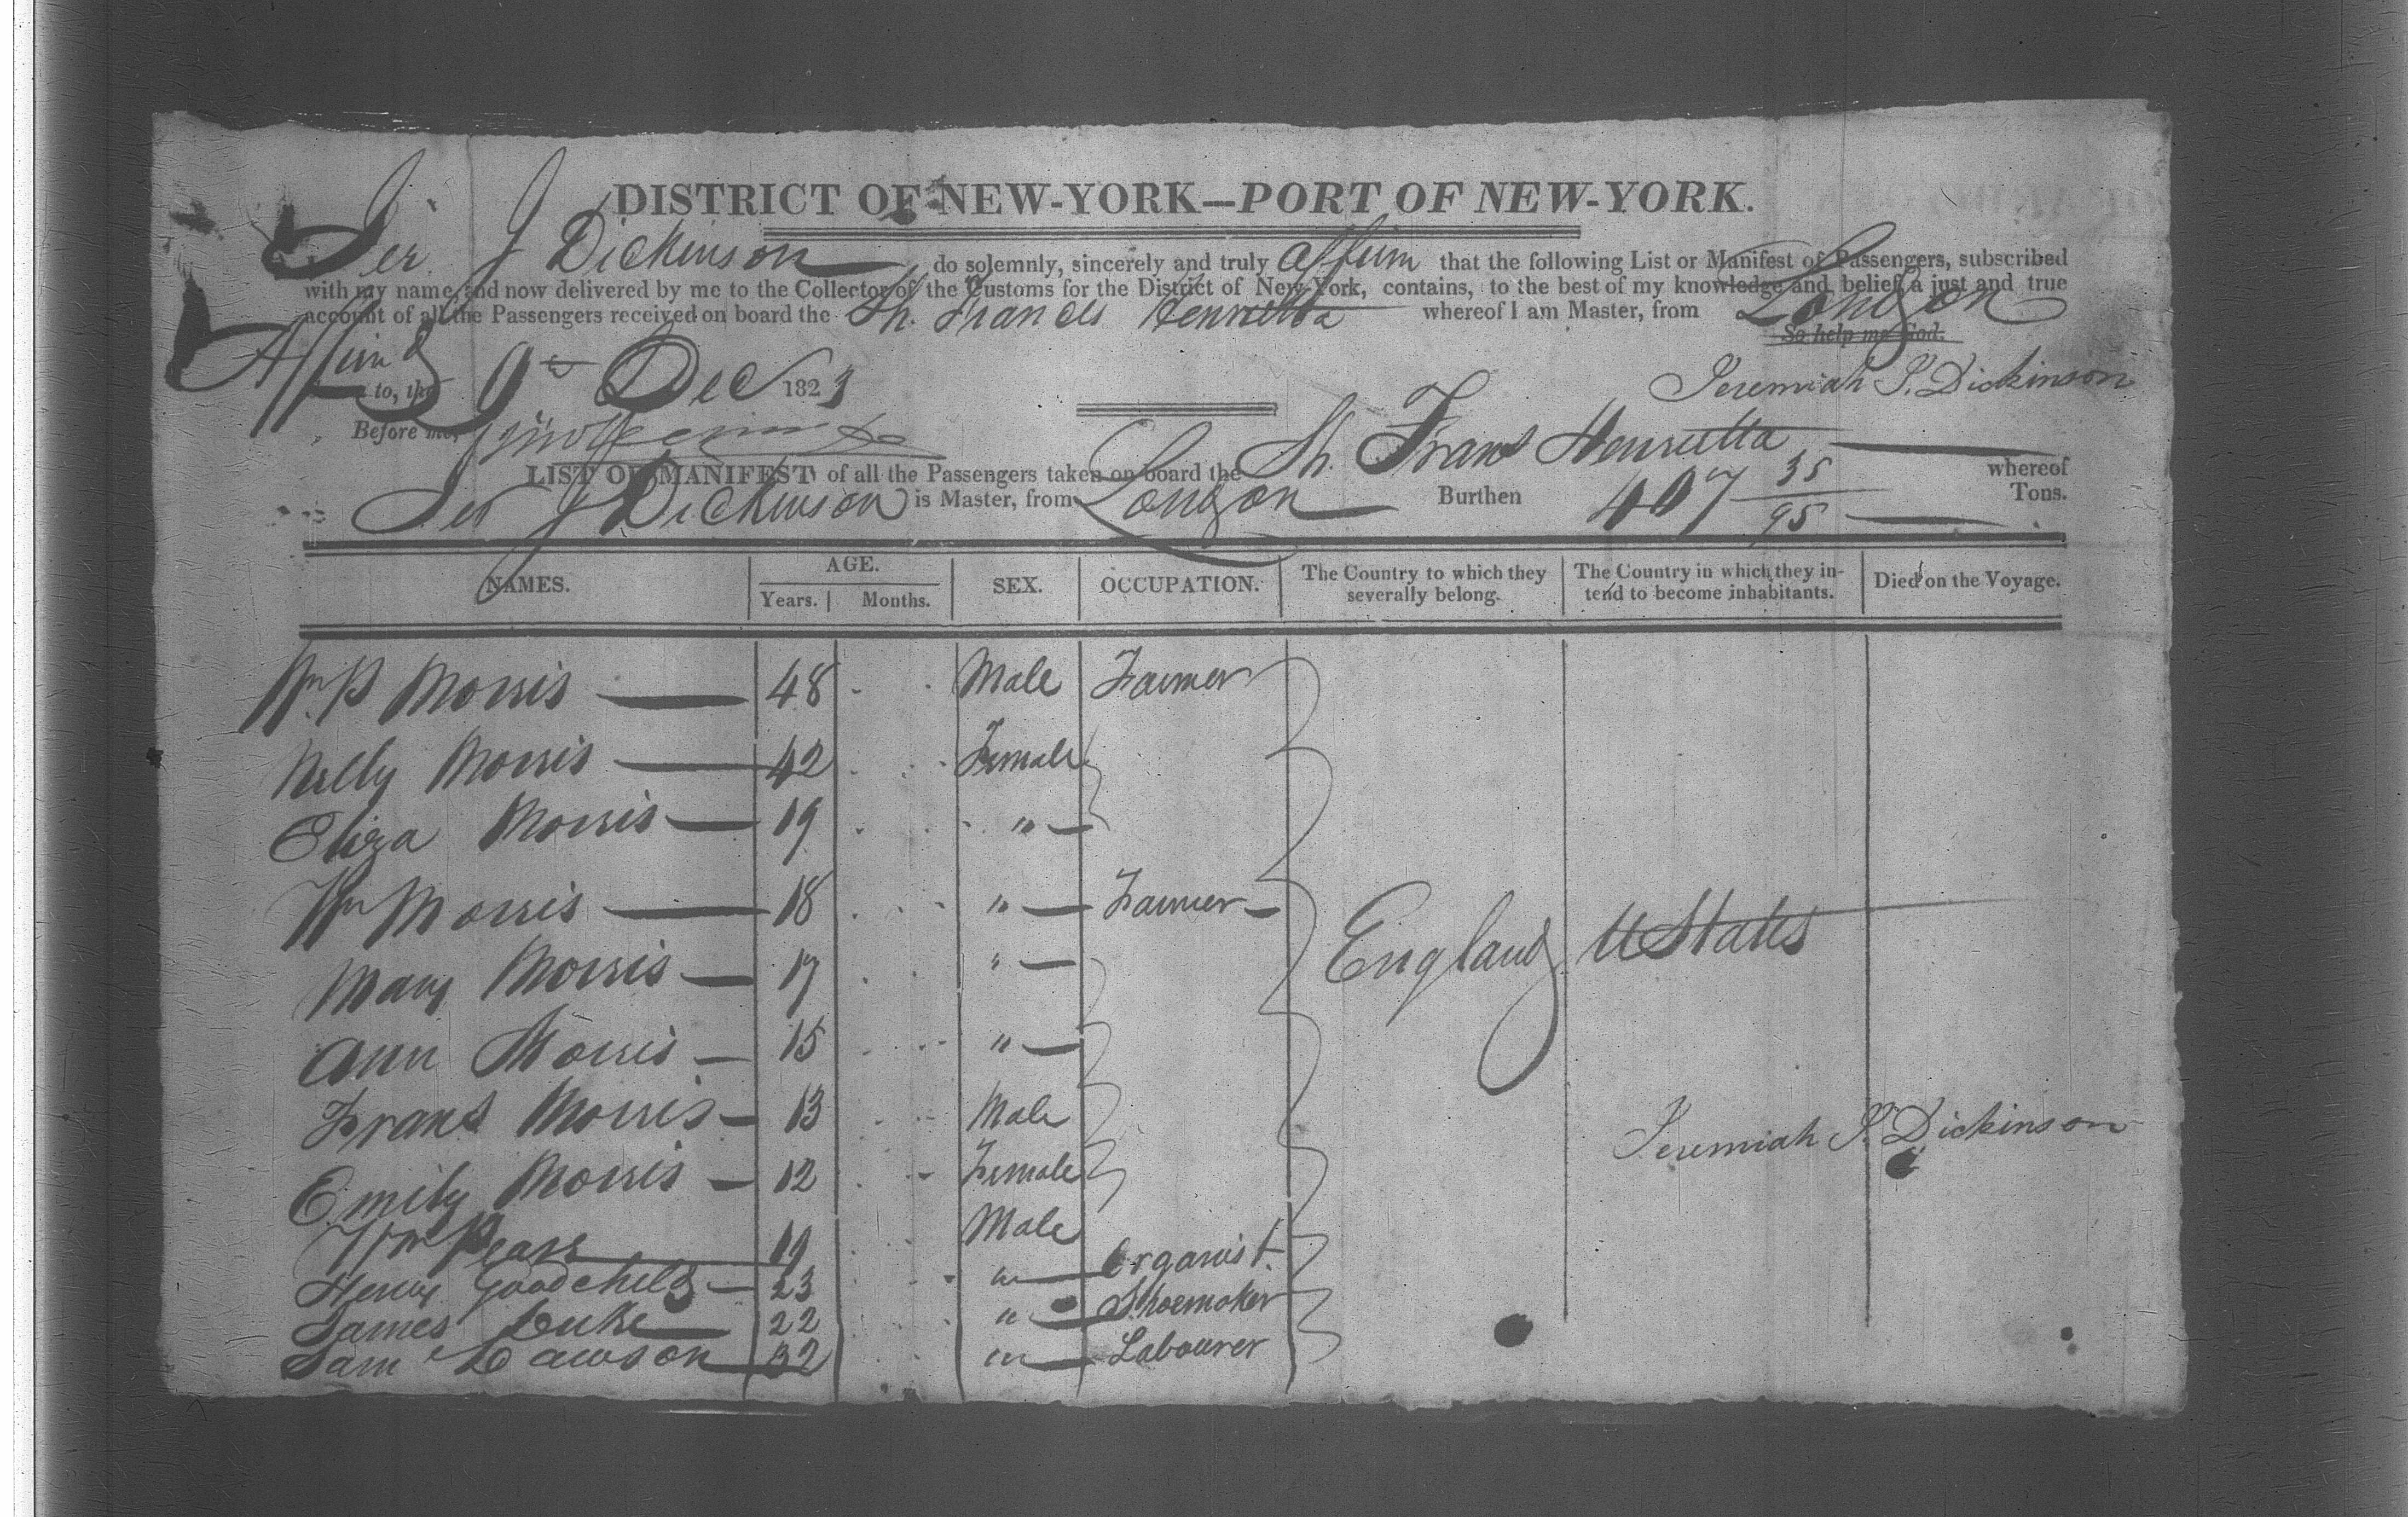 DISTRICT OF NEW-YORK—PORT OF NEW-YORK.
Jer. J Dickinson do solemnly, sincerely and truly affirm that the following List or Manifest of Passengers, subscribed
with my name, and now delivered by me to the Collector of the Customs for the District of New-York, contains, to the best of my knowledge and belief, a just and true
account of all the Passengers received on board the Sh. Francis Henrietta whereof I am Master, from London
So help me God.
Affirmd to, the 9th Dec 1823
Jeremiah J. Dickinson
Before me,
LIST OR MANIFEST of all the Passengers taken on board the Sh. Frans Henrietta whereof
Jer J Dickinson is Master, from London Burthen 407 35/95 Tons.
NAMES. AGE. Years. Months. SEX. OCCUPATION. The Country to which they severally belong. The Country in which they intend to become inhabitants. Died on the Voyage.
Wm P Morris 48 Male Farmer
Nelly Morris 42 Female
Eliza Morris 19 "
Wm Morris 18 " Farmer
Mary Morris 17 "
England U States
Ann Morris 15 "
Frans Morris 13 Male
Jeremiah J. Dickinson
Emily Morris 12 Female
Wm Pease 19 Male
Henry Goodchild 23 " Organist
James Luke 22 " Shoemaker
Sam Lawson 32 " Labourer